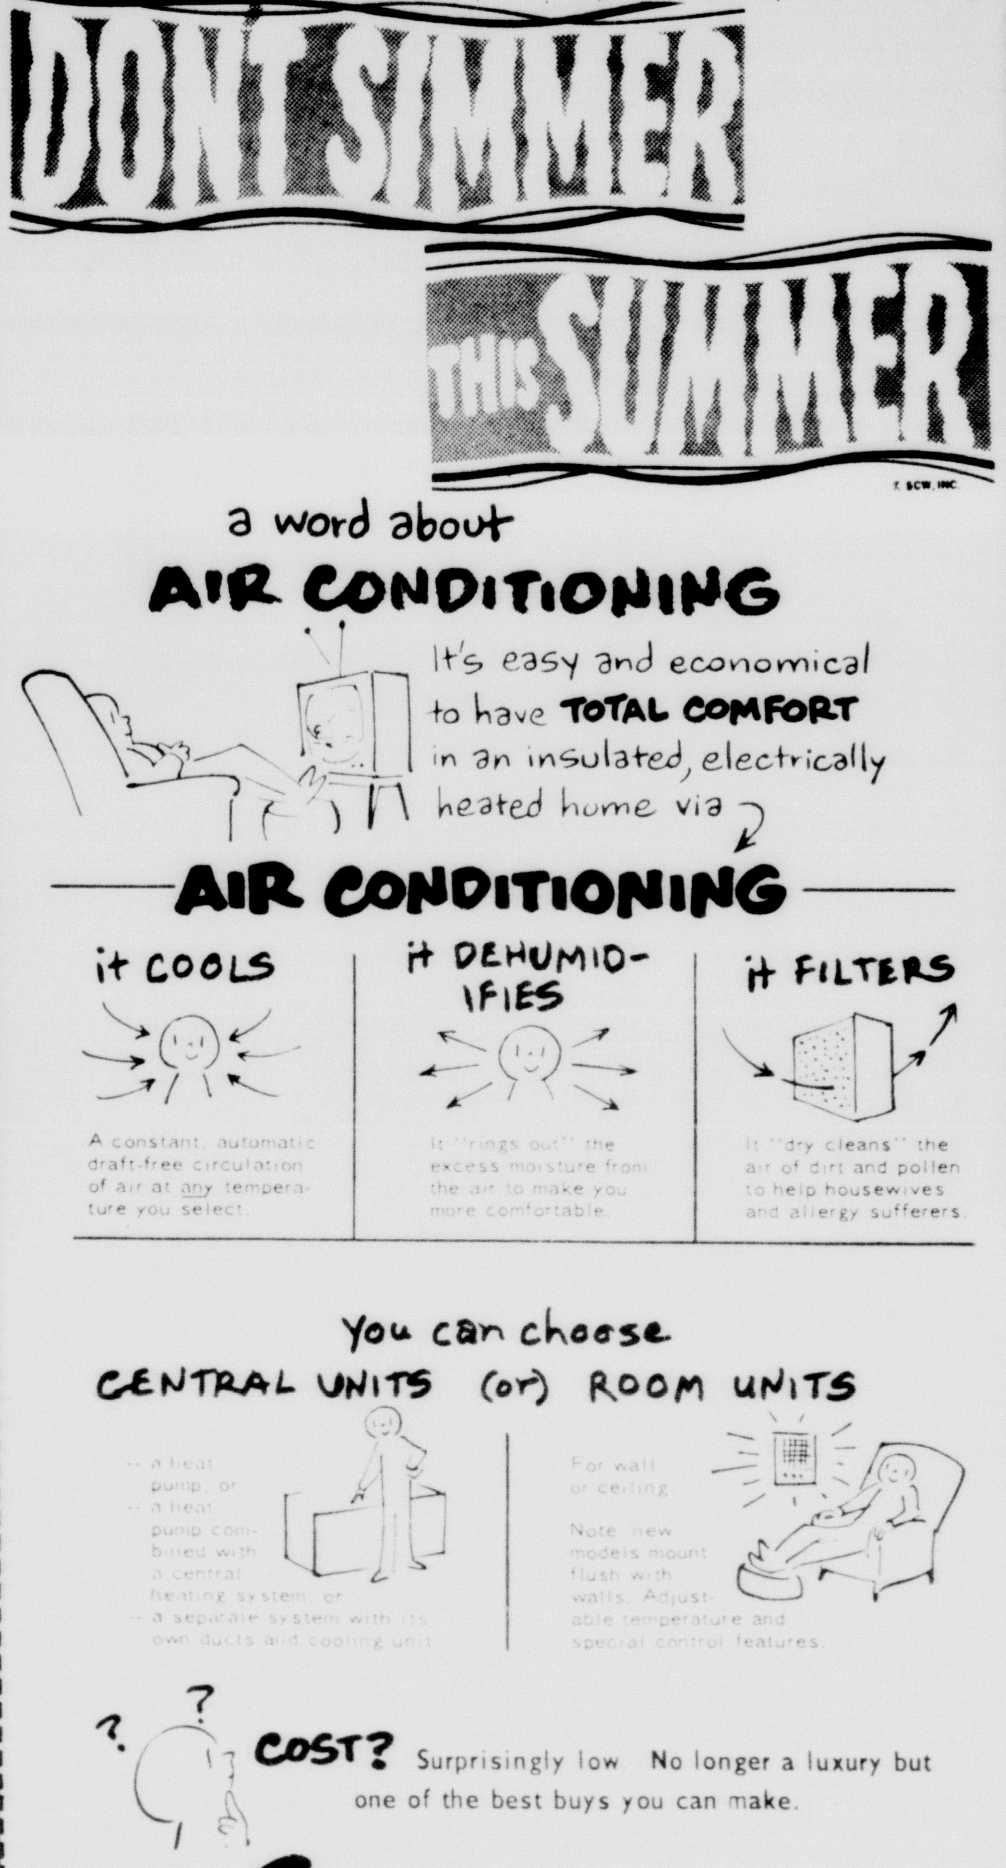 DON'T SIMMER
THIS SUMMER
SCW, INC.
a word about
AIR CONDITIONING
It's easy and economical
to have TOTAL COMFORT
in an insulated, electrically
heated home via
AIR CONDITIONING
it COOLS
A constant, automatic
draft-free circulation
of air at any tempera-
ture you select.
it DEHUMID-
IFIES
It "rings out" the
excess moisture from
the air to make you
more comfortable.
it FILTERS
It "dry cleans" the
air of dirt and pollen
to help housewives
and allergy sufferers.
you can choose
CENTRAL UNITS (or) ROOM UNITS
-- a heat
pump, or
-- a heat
pump com-
bined with
a central
heating system, or
-- a separate system with its
own ducts and cooling unit.
For wall
or ceiling.
Note: new
models mount
flush with
walls. Adjust-
able temperature and
special control features.
? ?
COST? Surprisingly low. No longer a luxury but
one of the best buys you can make.